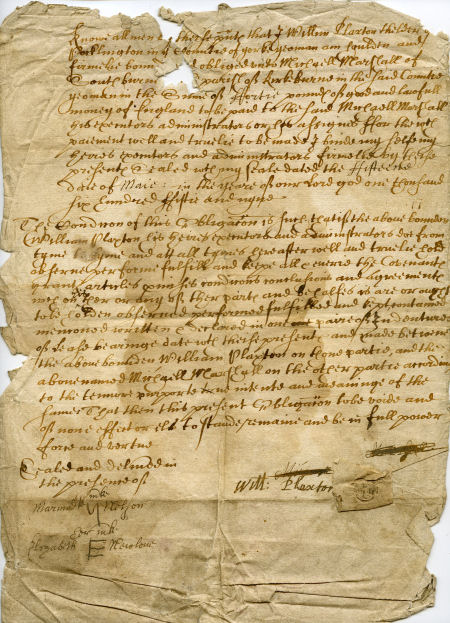 Knowe all men by these pnts that I Willm Plaxton the elder
Pocklington in ye Countie of yorke yeoman am houlden and
firmelie bound and obliged unto Michaell Marshall of
Southburne parish of Kirkburne in the said Countie
yeoman in the Some of ffortie pounds of good and lawfull
money of England to be paid to the said Michaell Marshall
his executors administrators or his assignes ffor the wch
paiement well and truelie to be made I binde my selfe my
heires executors and administrators firmelie by these
presents Sealed wth my seale dated the ffifteene
daie of Maie : in the yeare of our Lord god one thousand
six hundred ffiftie and nyne
The Condicon of this Obligation is such that if the above bounden
William Plaxton his heires executors and administrators doe from
tyme to tyme and att all tymes hereafter well and truelie hold
observe performe fulfill and keepe all & everie the Covenants
grants articles conclusions and agreements
wch on or any of ther parts and behalfes is are or ought
to be holden observed performed fulfilled and kept contained
mencioned written declared in one paire of Indentures
of Lease bearinge date wth these presents and made betweene
the above bounden William Plaxton on thone partie, and the
above named Michaell Marshall on the other partie accordinge
to the tenure purporte true intente and meaninge of the
same That then this present Obligation to be voide and
of none effect or els to stande remaine and be in full power
force and vertue
Sealed and delivered in
the presence of
Marmad: Nelson
Will: Plaxton
her mke
Elizabeth E Newlove